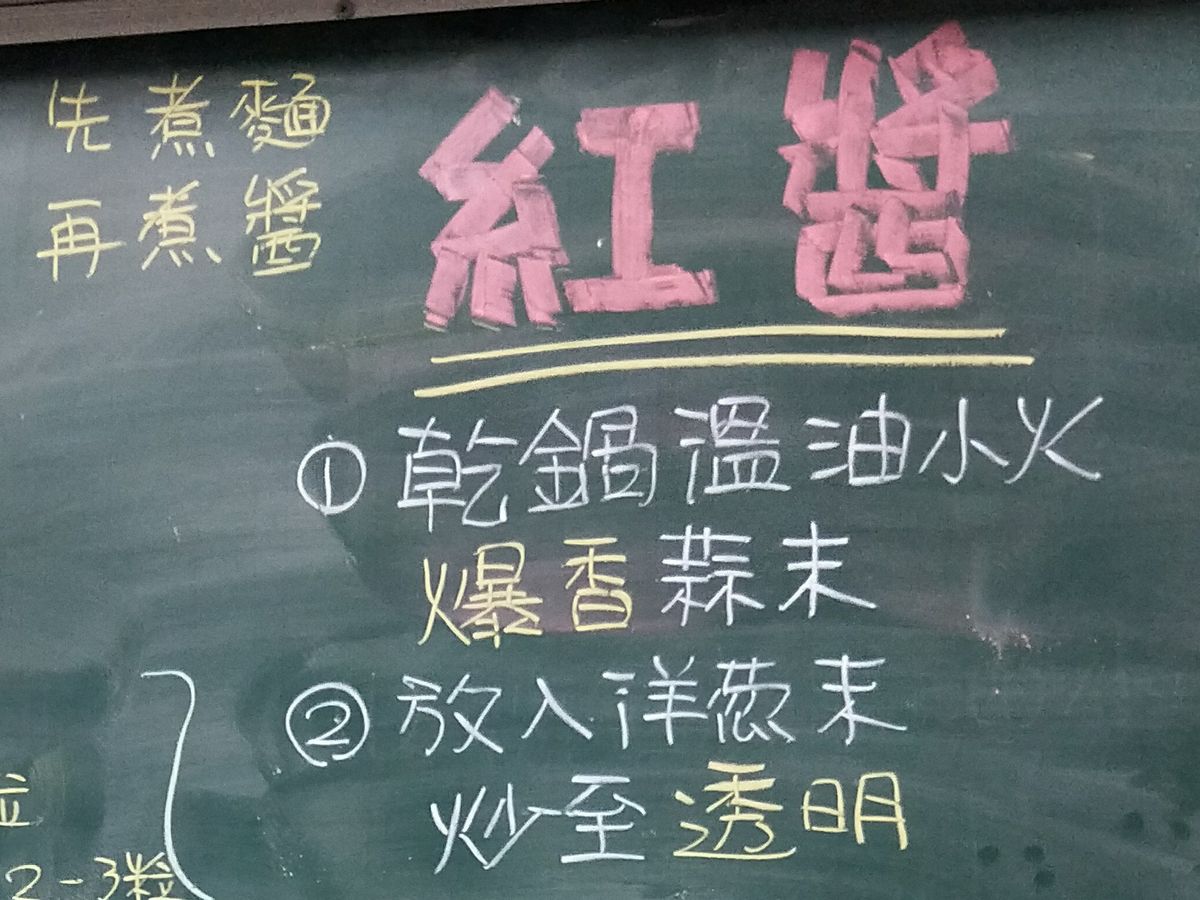 先煮麵
再煮醬
紅醬
① 乾鍋溫油小火
爆香蒜末
② 放入洋蔥末
炒至透明
粒
2-3粒